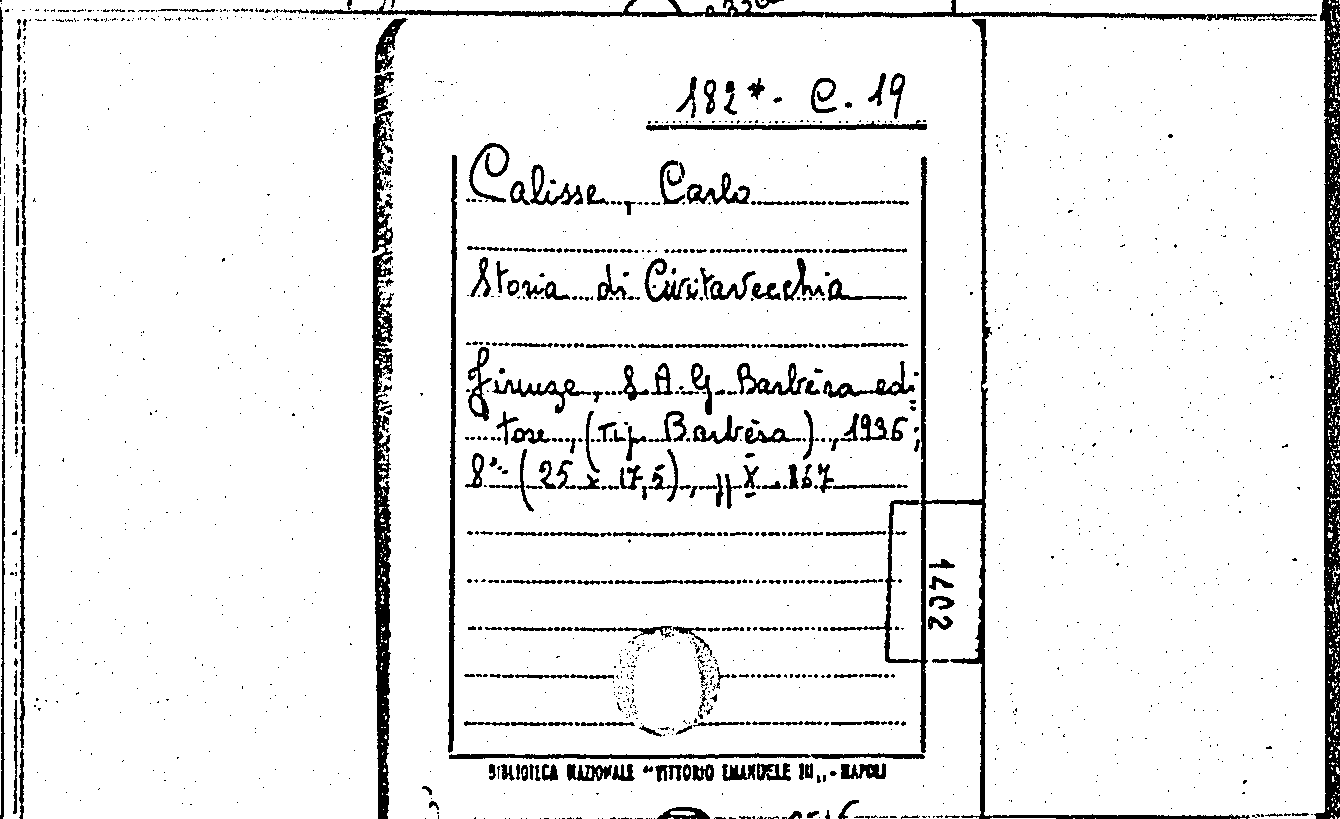 182* - C. 19
Calisse, Carlo
Storia di Civitavecchia
Firenze, S. A. G. Barbèra edi
tore, (Tip. Barbèra), 1936;
8° (25 x 17,5), pp X. 867
1402
BIBLIOTECA NAZIONALE "VITTORIO EMANUELE III„ - NAPOLI